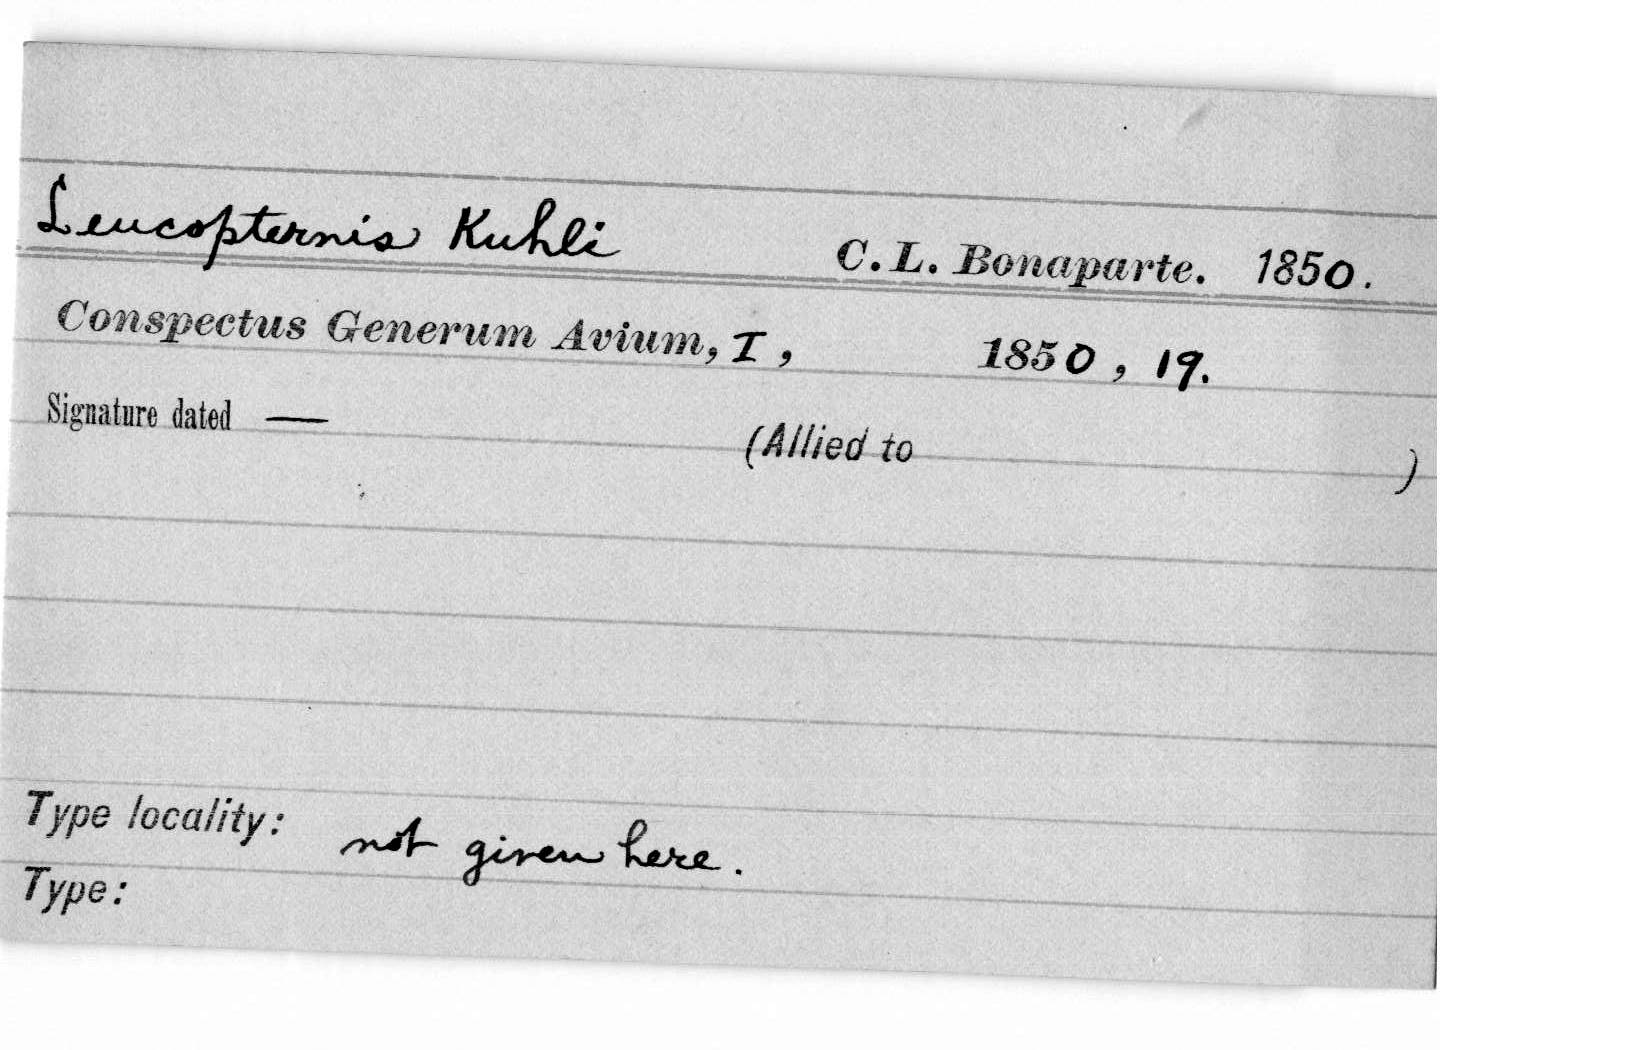 Leucopternis Kuhli C. L. Bonaparte. 1850.
Conspectus Generum Avium, I, 1850, 19.
Signature dated —
(Allied to )
Type locality: not given here.
Type: